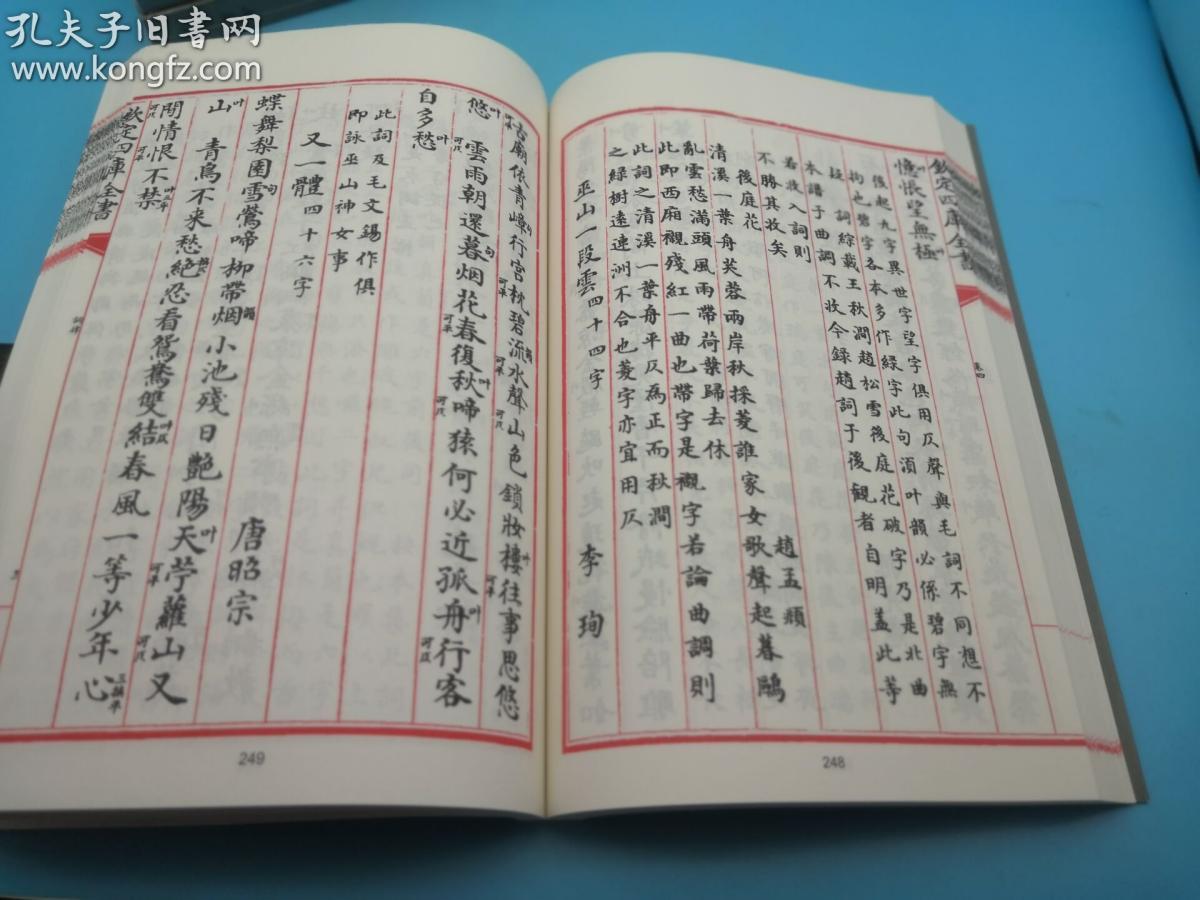 孔夫子旧书网
www.kongfz.com
欽定四庫全書
卷四
憶悵望無極
後起九字異世字望字俱用仄聲與毛詞不同想不
拘也碧字各本多作緑字此句湏叶韻必係碧字無
疑 詞綜載王秋澗趙松雪後庭花破字乃是北曲
本譜于曲調不收今録趙詞于後觀者自明盖此等
若收入詞則
不勝其收矣
後庭花
趙孟頫
清溪一葉舟芙蓉兩岸秋採菱誰家女歌聲起暮鷗
亂雲愁滿頭風雨帶荷葉歸去休
此即西廂襯殘紅一曲也帶字是襯字若論曲調則
此詞之清溪一葉舟平仄為正而秋澗
之緑樹遠連洲不合也菱字亦宜用仄
巫山一段雲四十四字
李珣
古廟依青嶂行宮枕碧流水聲山色鎖妝樓往事思悠
悠 雲雨朝還暮烟花春復秋啼猿何必近孤舟行客
自多愁
此詞及毛文錫作俱
即詠巫山神女事
又一體四十六字
唐昭宗
蝶舞梨園雪鶯啼柳帶烟小池殘日艷陽天苧蘿山又
山 青鳥不来愁絶忍看鴛鴦雙結春風一等少年心
閒情恨不禁
欽定四庫全書
詞律
248
249